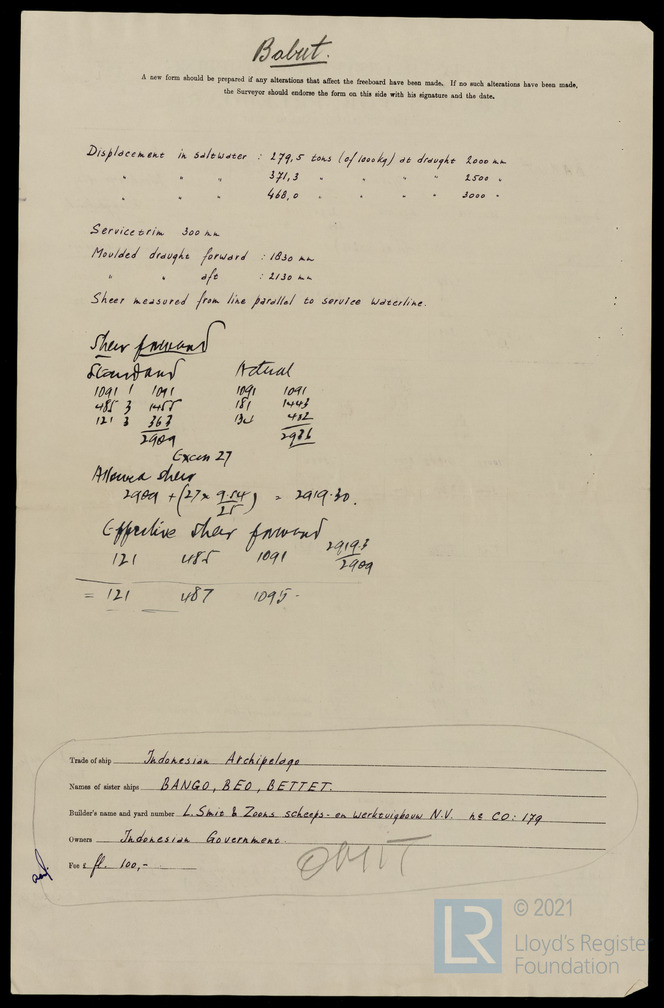 Babut.
A new form should be prepared if any alterations that affect the freeboard have been made. If no such alterations have been made,
the Surveyor should endorse the form on this side with his signature and the date.
Displacement in saltwater : 279,5 tons (of 1000kg) at draught 2000 mm
" " " 371,3 " " " " 2500 "
" " " 468,0 " " " " 3000 "
Service trim 300 mm
Moulded draught forward : 1830 mm
" " aft : 2130 mm
Sheer measured from line parallel to service waterline.
Sheer forward
Standard Actual
1091 1 1091 1091 1091
485 3 1455 481 1443
121 3 363 134 402
2909 2936
Excess 27
Allowed sheer
2909 + (27 x 9.54/25) = 2919.30.
Effective sheer forward
121 485 1091 2919.3/2909
= 121 487 1095.
Trade of ship Indonesian Archipelago
Names of sister ships BANGO, BEO, BETTET.
Builder's name and yard number L. Smit & Zoons scheeps- en werktuigbouw N.V. no CO: 179
Owners Indonesian Government.
Fee £ fl. 100,-
OMIT
LR
© 2021
Lloyd's Register
Foundation